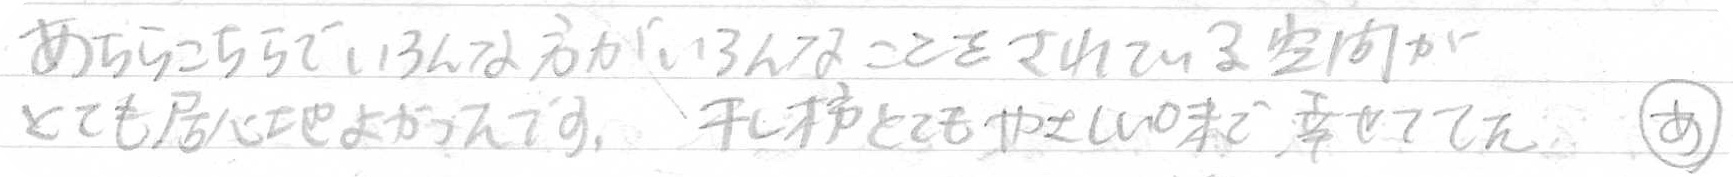 あちらこちらでいろんな方がいろんなことをされている空間が
とても居心地よかったです。 干し柿とてもやさしい味で幸せでした あ